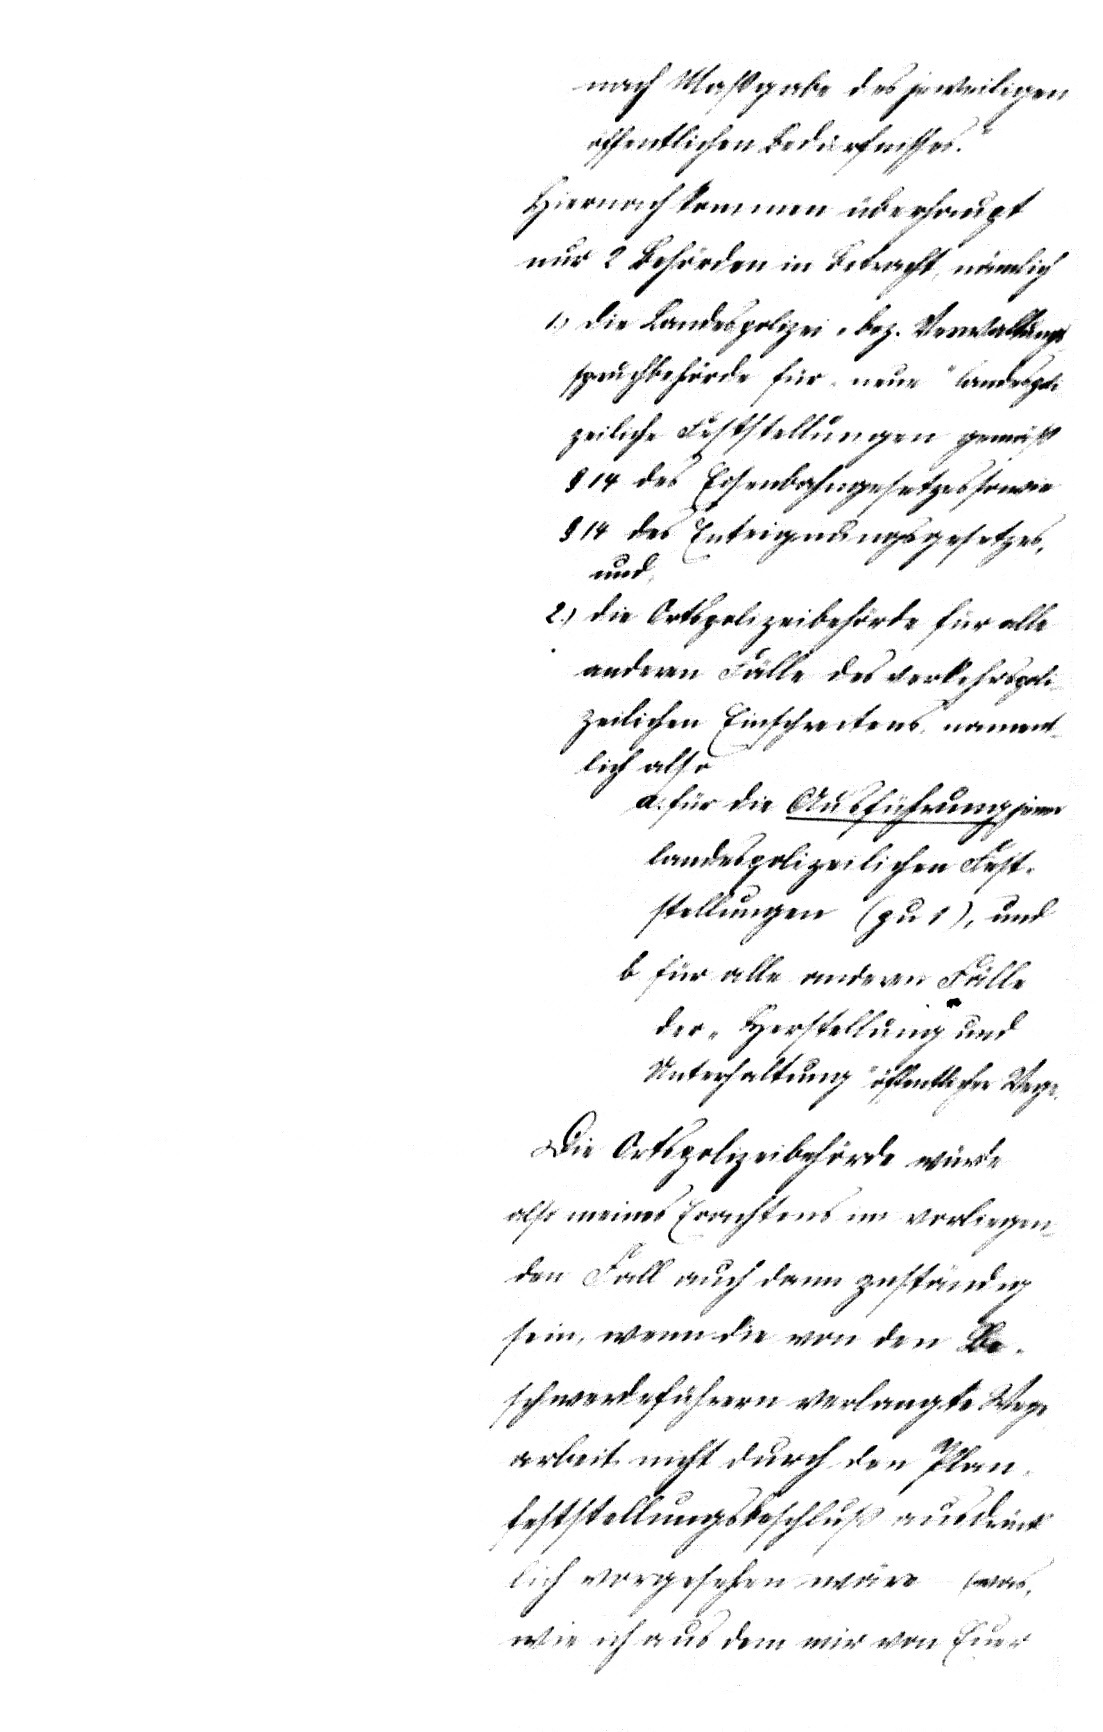 nach Maßgabe des jeweiligen
öffentlichen Bedürfnisses."
Hiernach kommen überhaupt
nur 2 Behörden in Betracht, nämlich
1.) die Landespolizei- bez. Verwaltungs-
spruchbehörde für "neue" landespoli-
zeiliche Feststellungen gemäß
§ 14 des Eisenbahngesetzes sowie
§ 14 des Enteignungsgesetzes,
und,
2.) die Ortspolizeibehörde für alle
anderen Fälle des verkehrspoli-
zeilichen Einschreitens, nament-
lich also
a. für die Ausführung jener
landespolizeilichen Fest-
stellungen (zu 1), und
b für alle anderen Fälle
der „Herstellung und
Unterhaltung" öffentlicher Wege.
Die Ortspolizeibehörde würde
also meines Erachtens im vorliegen-
den Fall auch dann zuständig
sein, wenn die von den Be-
schwerdeführern verlangte Wege-
arbeit nicht durch den Plan-
feststellungsbeschluß ausdrück-
lich vorgesehen wäre (was,
wie ich aus dem mir von Euer